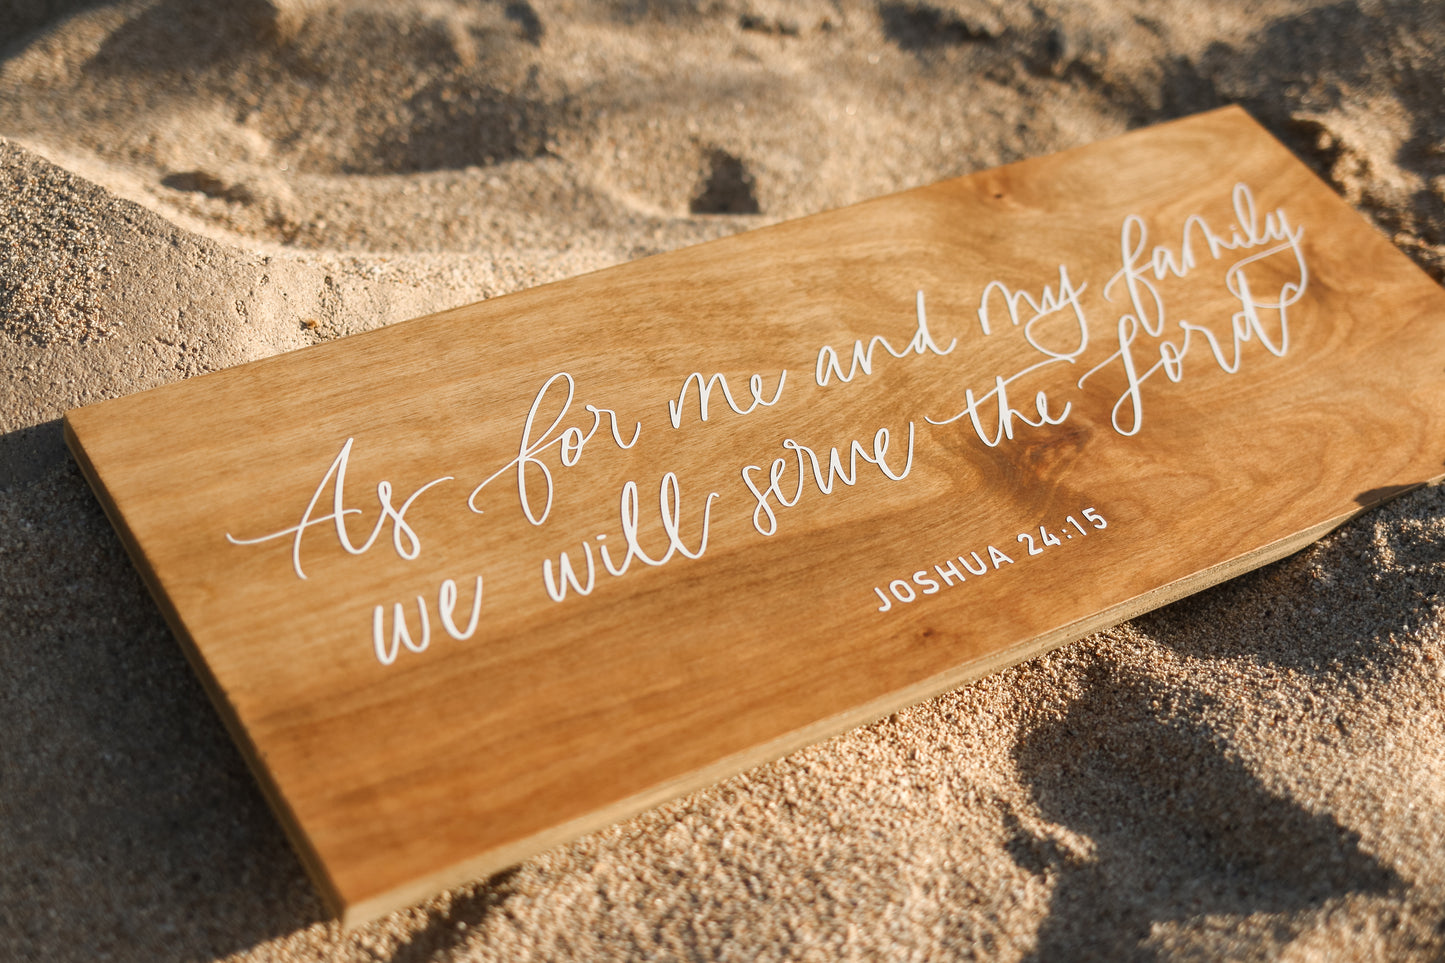 As for me and my family
we will serve the Lord
JOSHUA 24:15